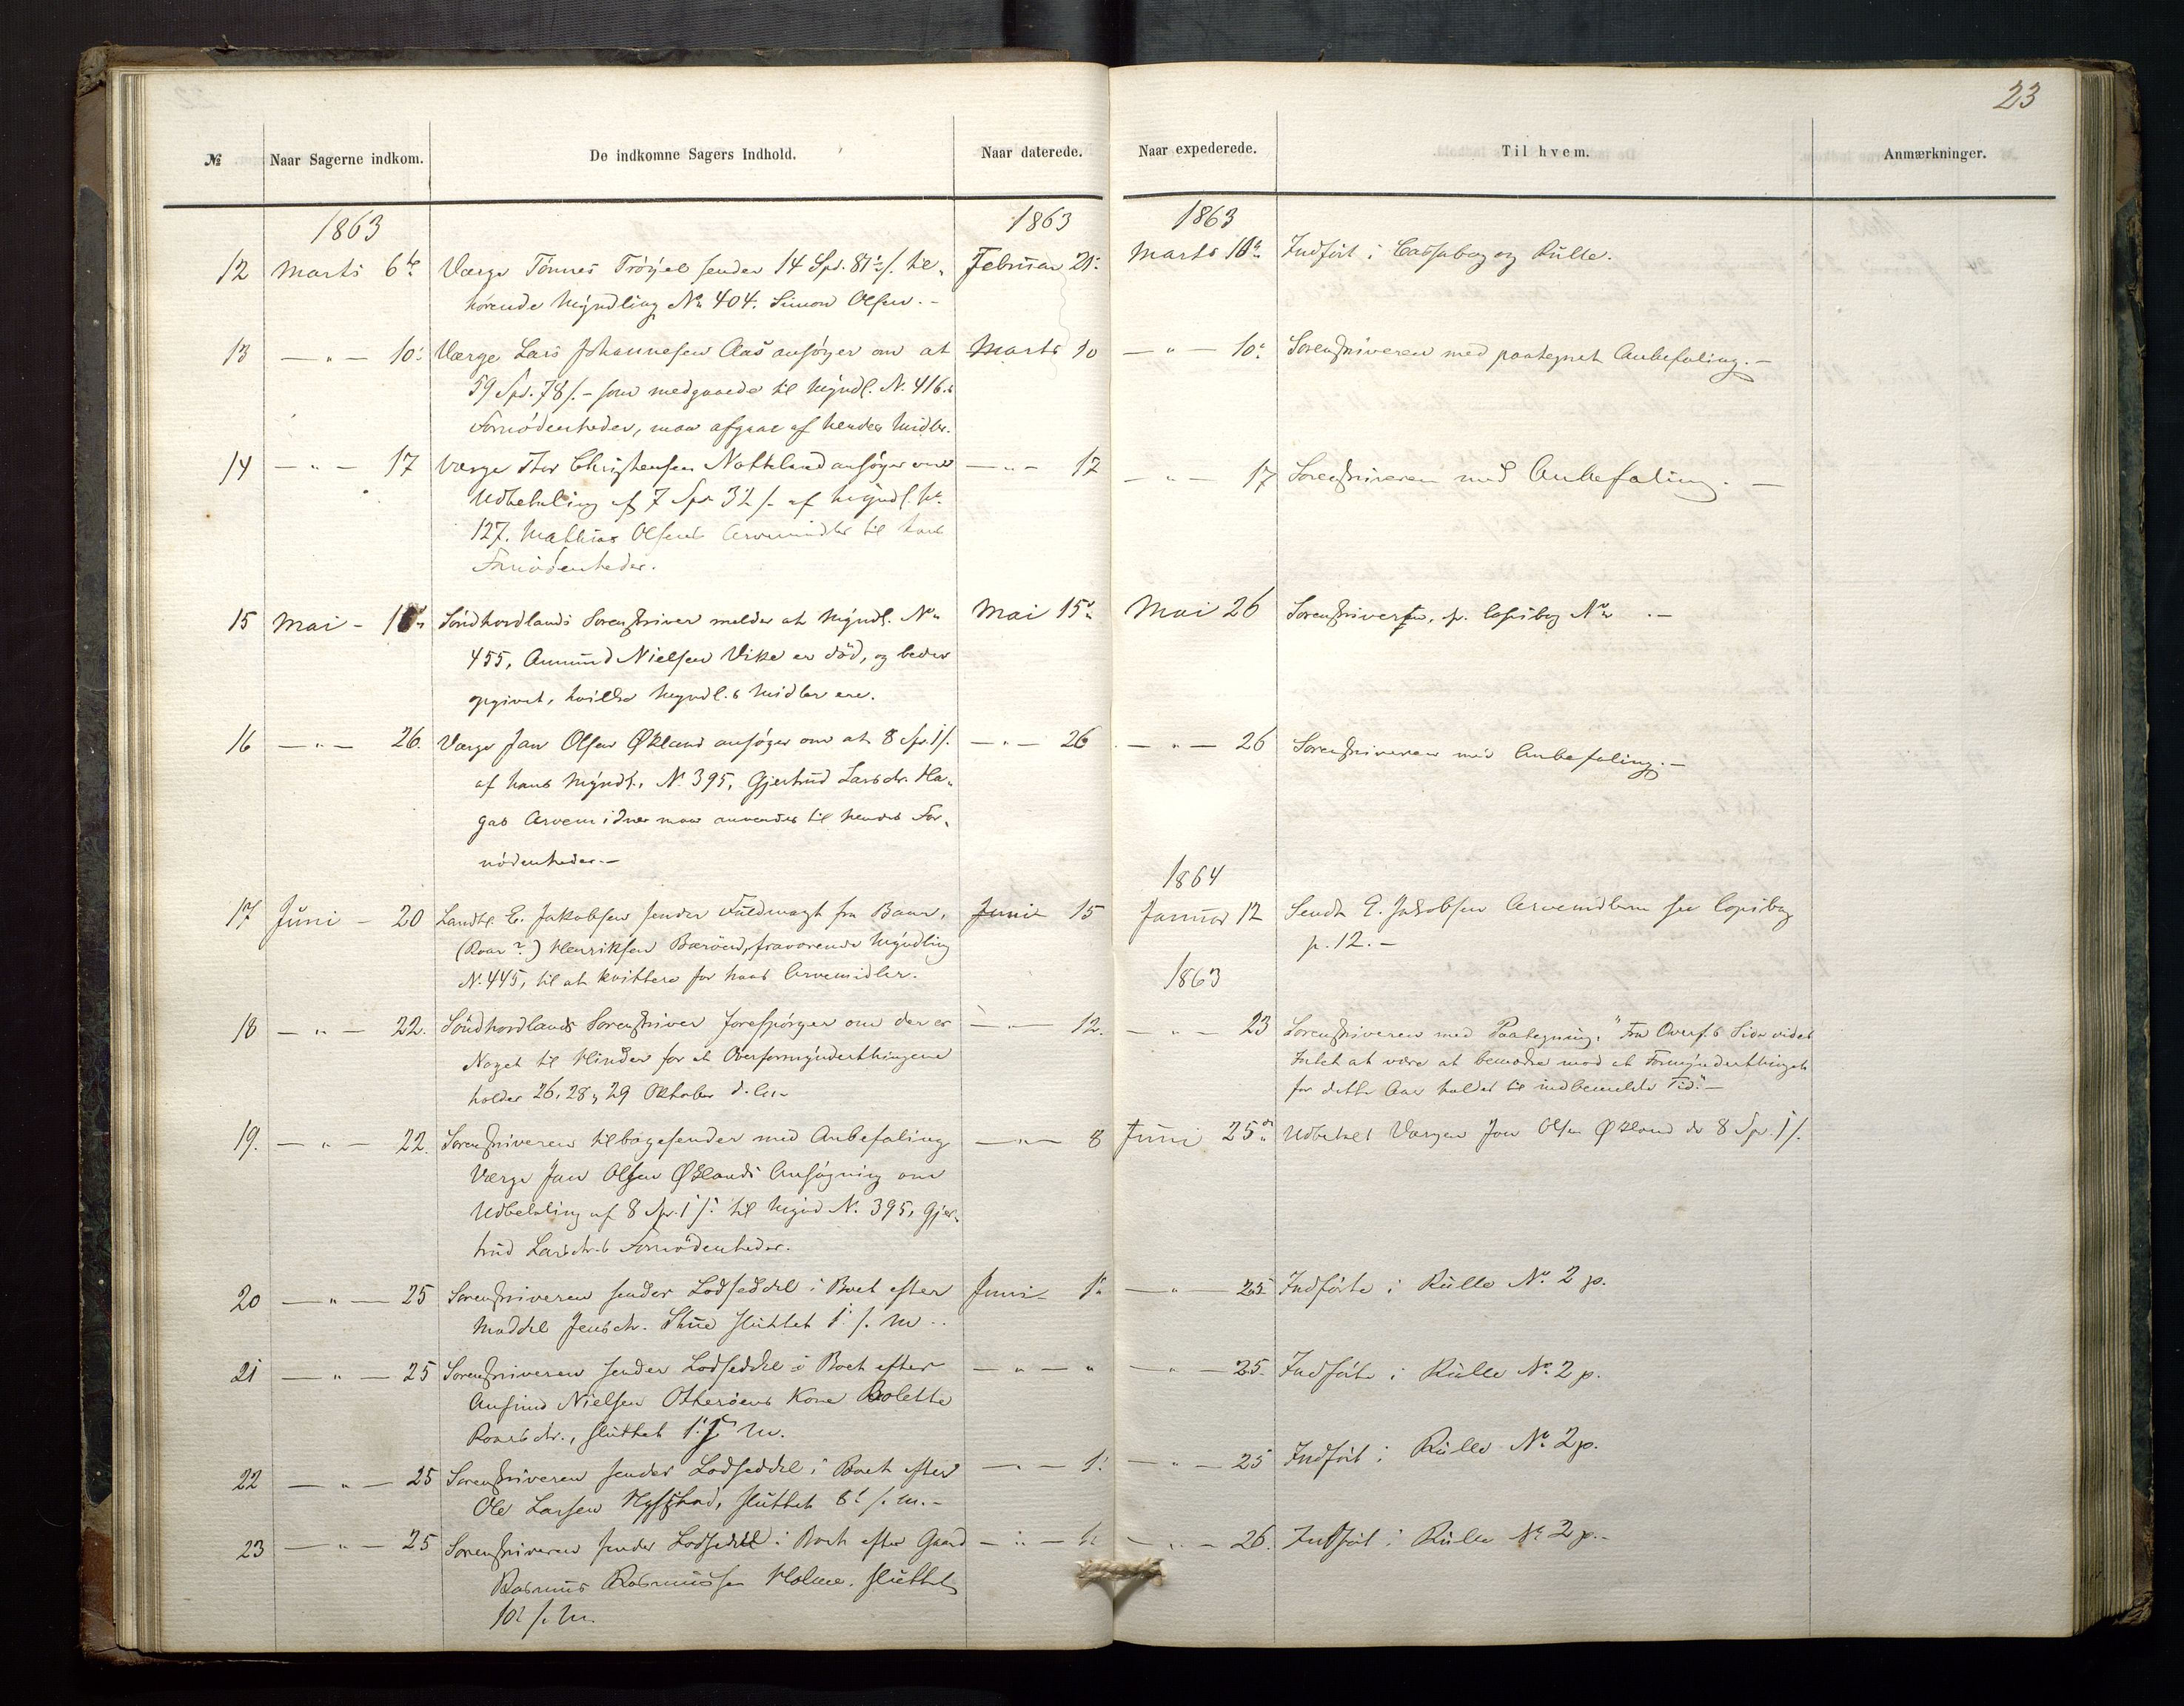 23
№ Naar Sagerne indkom. De indkomne Sagers Indhold. Naar daterede. Naar expederede. Til hvem. Anmærkninger.
1863 1863 1863
12 Marts 6te Værge Tönnes Tröyel sender 14 Spd. 81 s/. til- Februar 21. Marts 10de Indfört i Cassabog og Rulle.
hörende Myndling No 404. Simon Olsen.-
13 — " — 10. Værge Lars Johannesen Aas ansöger om at Marts 10 — " — 10. Sorenskriveren med paategnet Anbefaling.-
59 Spd. 78 /.- som medgaaede til Myndl. N. 416.s
Fornödenheder, maa afgaae af hendes Midler.
14 — " — 17 Værge Thor Christensen Natteland ansöger om — " — 17 — " — 17 Sorenskriveren med Anbefaling. —
Udbetaling af 7 Spd 32 /. af Myndl. No
127. Mathias Olsens Arvemidler til hans
Fornödenheder.
15 Mai - Söndhordlands Sorenskriver melder at Myndl. No Mai 15de Mai 26 Sorenskriveren, p. Copibog No .-
455, Amund Nielsen Vike er död, og beder
opgivet, hvilke Myndl.s Midler ere.
16 — " — 26. Værge Jan Olsen Økland ansöger om at 8 Sp. 1 /. — " — 26 — " — 26 Sorenskriveren med Anbefaling.-
af hans Myndl. No 395, Gjertrud Larsdr. Ha-
gas Arvemidler maa anvendes til hendes For-
nödenheder.-
1864
17 Juni - 20 Landh. E. Jakobsen sender Fuldmagt fra Baar, Juni 15 Januar 12 Sendt E. Jakobsen Arvemidlerne se Copibog
(Roar?) Henriksen Beröen, fraværende Myndling p. 12.-
N. 445, til at kvittere for hans Arvemidler.
1863
18 — " — 22. Söndhordlands Sorenskriver forespörger om der er — " — 12. — " — 23 Sorenskriveren med Paategning: "Fra Overf.s Side vides
Noget til Hinder for at Overformynderthingene Intet at være at bemærke mod at Formynderthinget
holdes 26, 28 & 29 Oktober d. A.- for dette Aar holdes til indbemeldte Tid."-
19. — " — 22. Sorenskriveren tilbagesender med Anbefaling — " — 8 Juni 25de Udbetalt Værgen Jan Olsen Økland de 8 Sp. 1 /.
Værge Jan Olsen Øklands Ansögning om
Udbetaling af 8 Sp. 1 /. til Mynd N. 395, Gjer-
trud Larsdr.s Fornödenheder.
20 — " — 25 Sorenskriveren sender Lodseddel i Boet efter Juni 1. — " — 25 Indförte i Rulle No 2 p.
Maddel Jensdr. Skue sluttet 1. /. M..
21 — " — 25 Sorenskriveren sender Lodseddel i Boet efter — " — " — " — 25. Indfört i Rulle No 2 p.
Anfind Nielsen Otteröens Kone Bolette
Roarsdr., sluttet 1. f. M.
22 — " — 25 Sorenskriveren sender Lodseddel i Boet efter — " — 1. — " — 25 Indfört i Rulle No 2 p.
Ole Larsen sluttet 8. /. M.-
23 — " — 25 Sorenskriveren sender Lodseddel i Boet efter Gaard — " — — " — 26. Indfört i Rulle No 2 p.-
Rasmus Rasmussen Holme. sluttet
10. f. M.